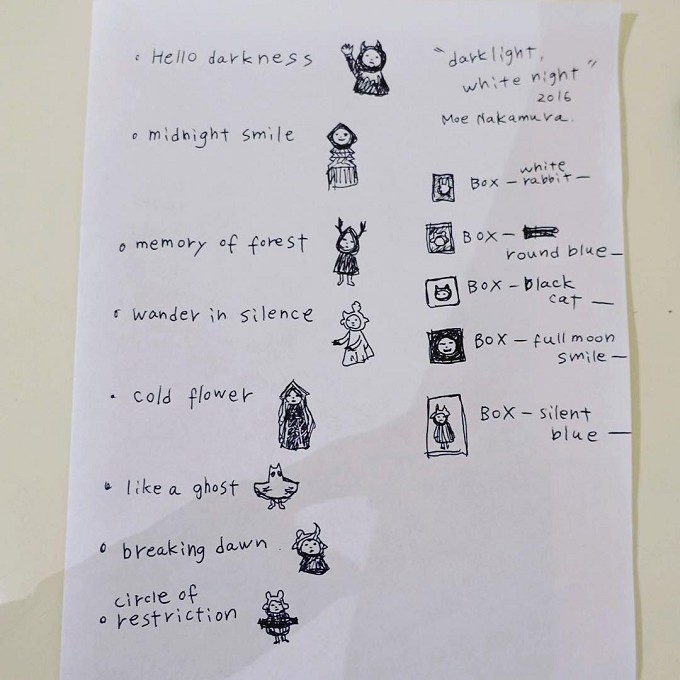 Hello darkness
midnight smile
memory of forest
wander in silence
cold flower
like a ghost
breaking dawn
circle of
restriction
"darklight,
white night"
2016
Moe Nakamura.
BOX – white
rabbit –
BOX –
round blue –
BOX – black
cat –
BOX – full moon
smile –
BOX – silent
blue –